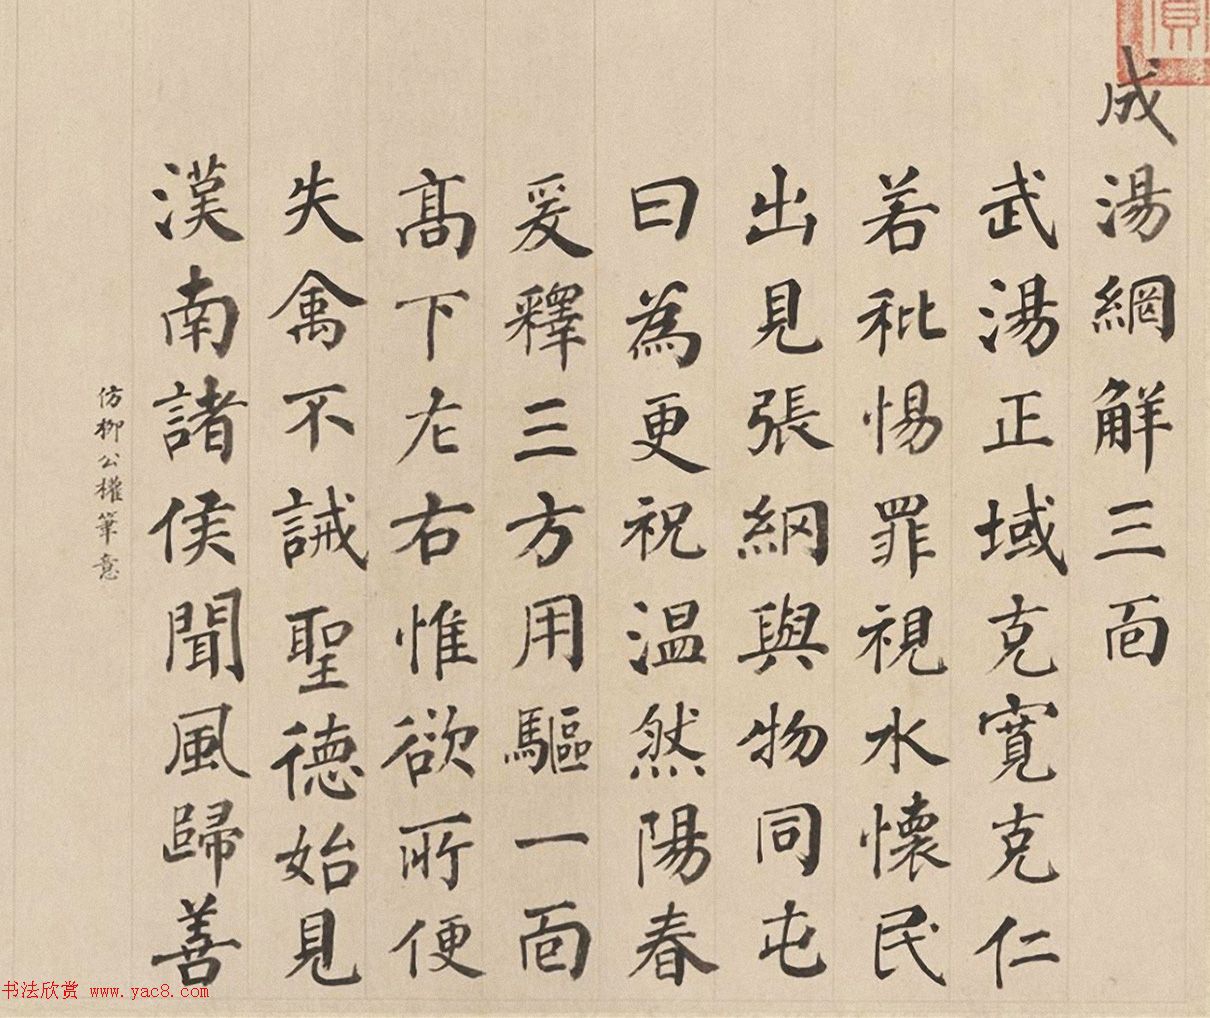 成湯網解三面
武湯正域克寬克仁
若秕惕罪視水懷民
出見張網與物同屯
曰為更祝温然陽春
爰釋三方用驅一面
髙下左右惟欲所便
失禽不誡聖德始見
漢南諸侯聞風歸善
仿柳公權筆意
书法欣赏 www.yac8.com